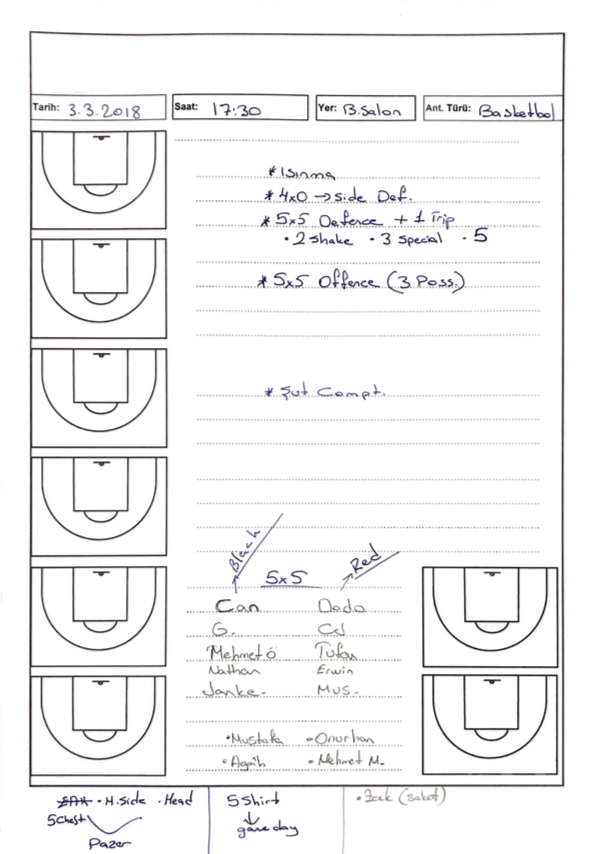 Tarih: 3.3.2018 Saat: 17:30 Yer: B.Salon Ant. Türü: Basketbol
* Isınma
* 4x0 → Side Def.
* 5x5 Defence + 1 Trip
• 2 Shake • 3 Special • 5
* 5x5 Offence (3 Poss.)
* Şut Compt.
Black Red
5x5
Can Dodo
G.
Mehmet Ö Tufan
Nathan Erwin
Janke. Mus.
• Mustafa • Onurhan
• Agâh • Mehmet M.
• H.Side • Head 5 Shirt
5 Chest ↓
game day
Pazar